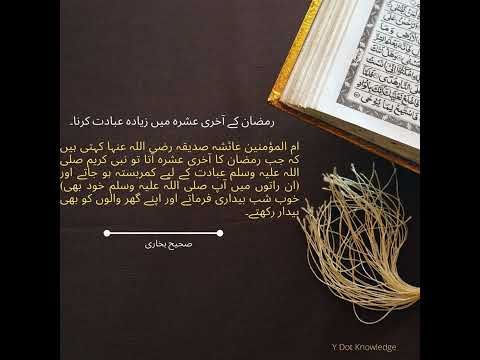 رمضان کے آخری عشرہ میں زیادہ عبادت کرنا۔
ام المؤمنین عائشہ صدیقہ رضی اللہ عنہا کہتی ہیں
کہ جب رمضان کا آخری عشرہ آتا تو نبی کریم صلی
اللہ علیہ وسلم عبادت کے لیے کمربستہ ہو جاتے اور
(ان راتوں میں آپ صلی اللہ علیہ وسلم خود بھی)
خوب شب بیداری فرماتے اور اپنے گھر والوں کو بھی
بیدار رکھتے۔
صحیح بخاری
Y Dot Knowledge